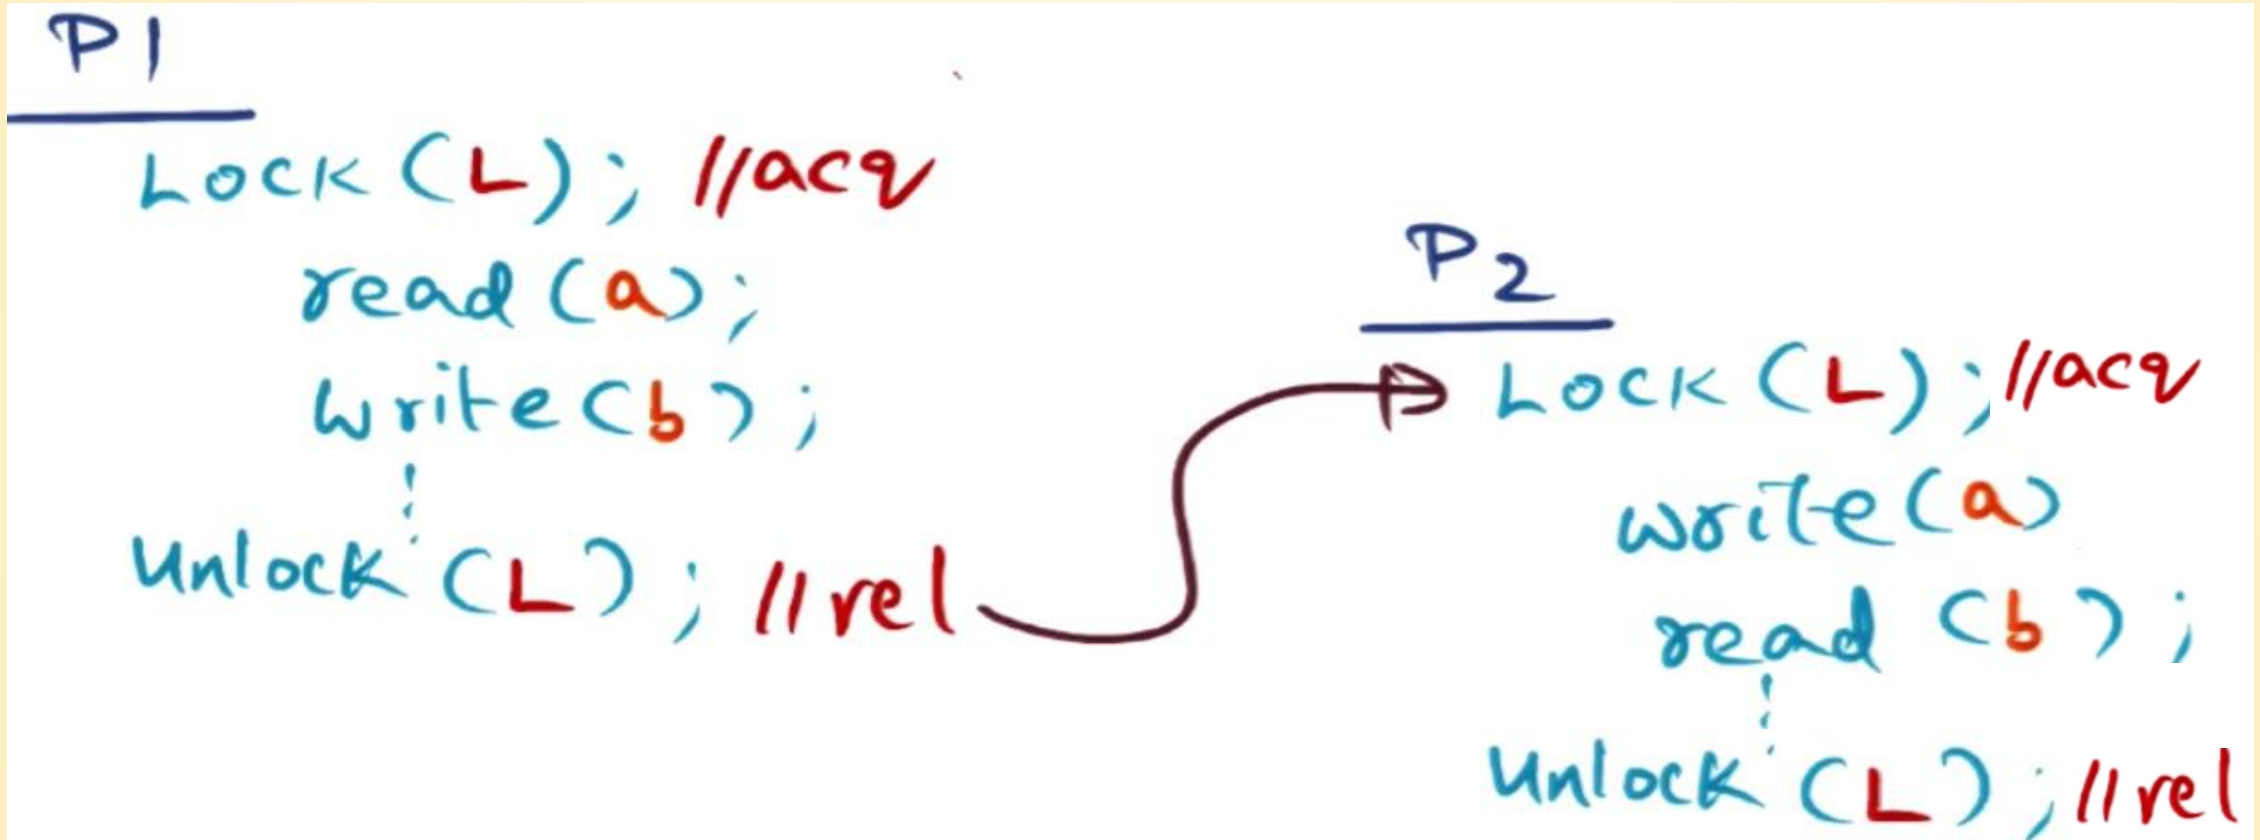 P1
Lock (L); //acq
read (a);
write (b);
Unlock (L); //rel
P2
Lock (L); //acq
write (a)
read (b);
Unlock (L); //rel